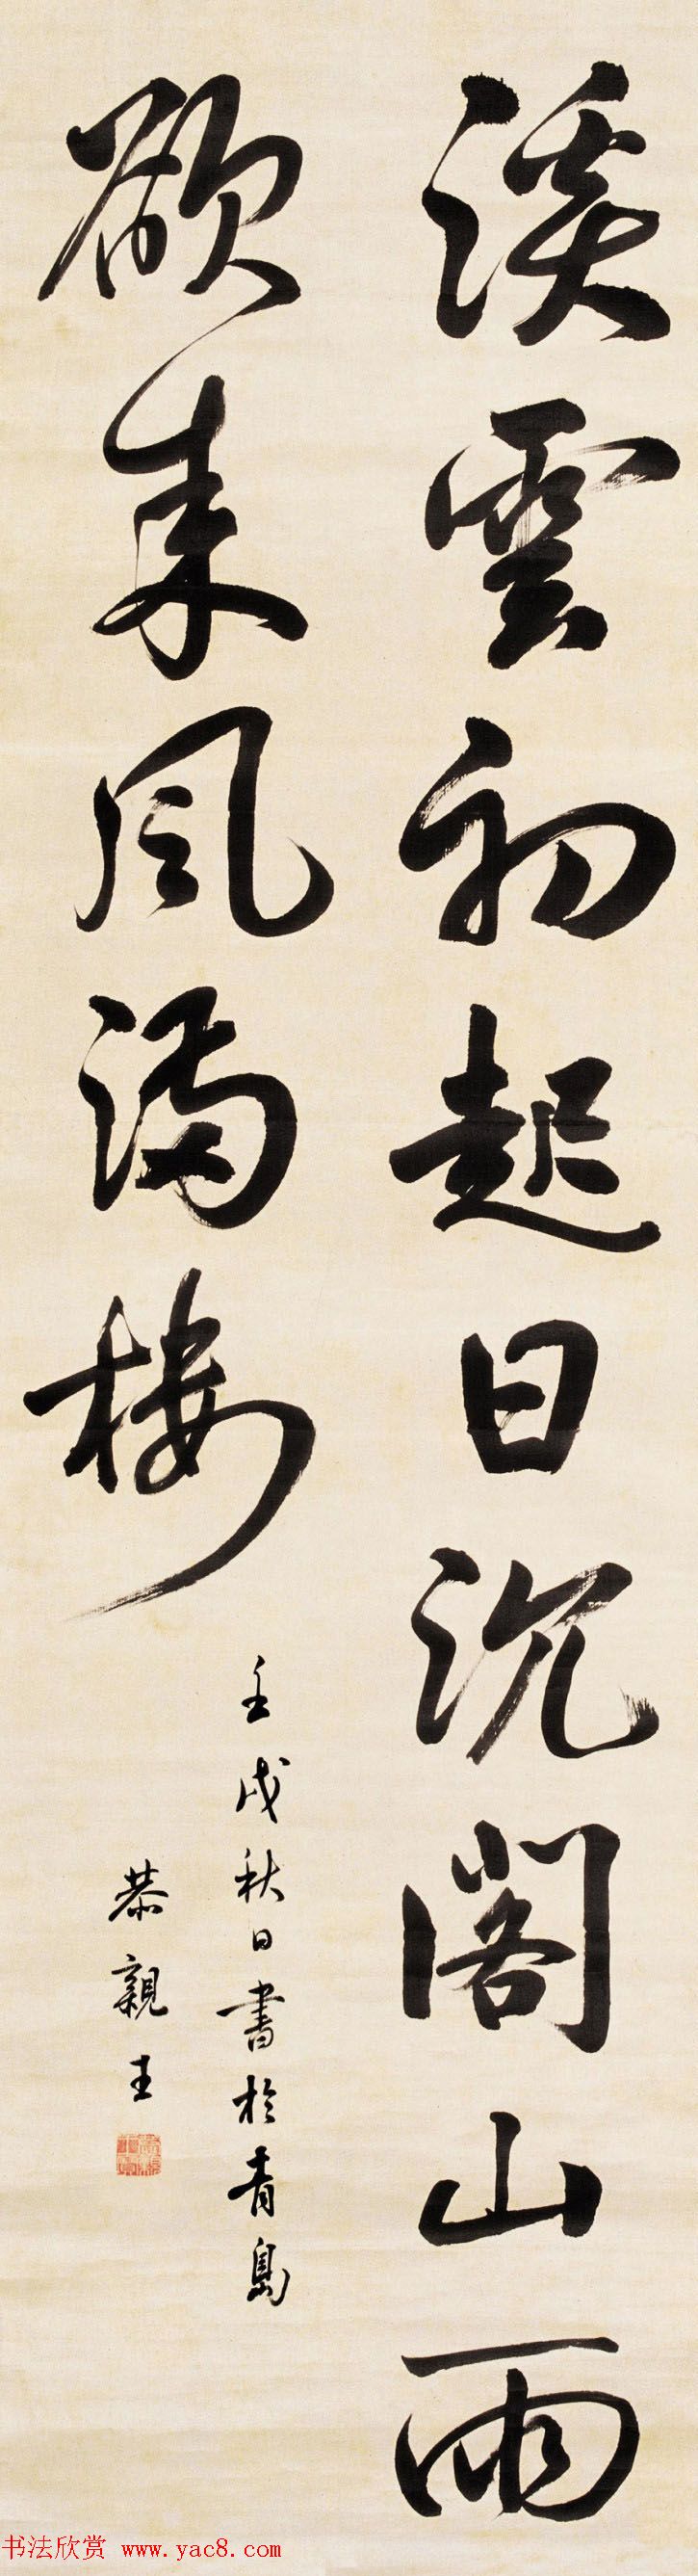 溪雲初起日沉閣山雨
欲来風滿樓
壬戌秋日書於青島
恭親王
书法欣赏 www.yac8.com